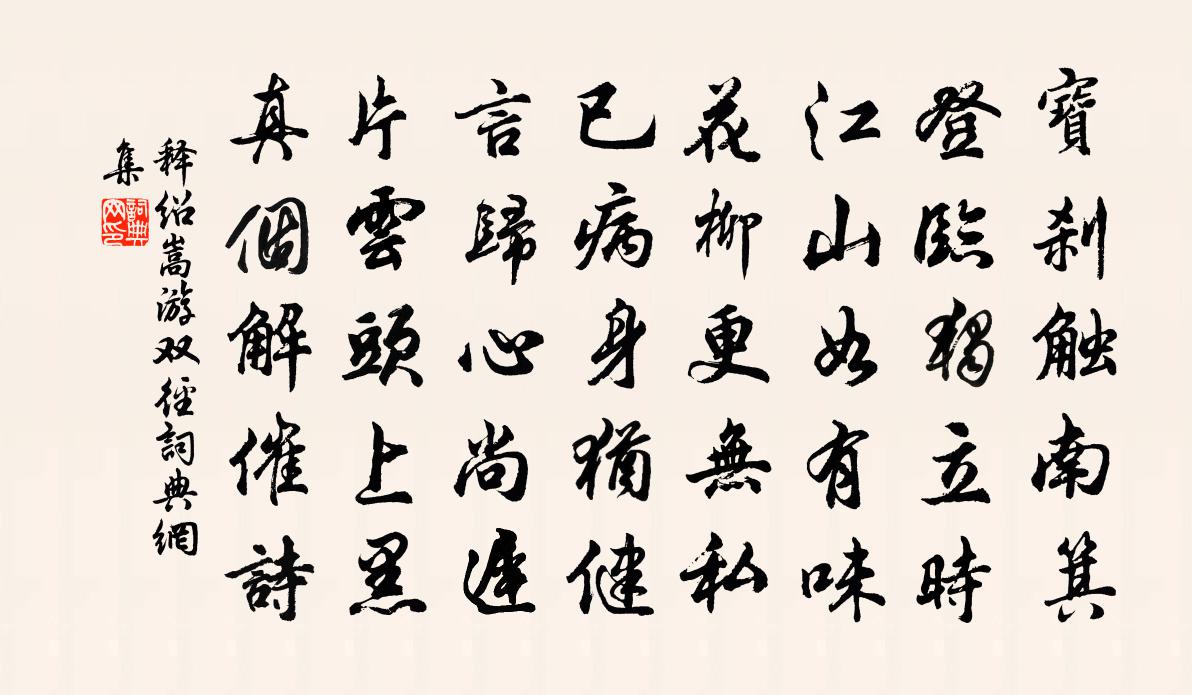 寶刹触南箕
登臨獨立時
江山如有味
花柳更無私
已病身猶健
言歸心尚遲
片雲頭上黑
真個解催詩
释绍嵩游双徑詞典網
集
詞典
网印